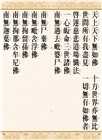 天上天下無如佛　十方世界亦無比
世間所有我盡見　一切無有如佛者
啓運慈悲道場懺法
一心歸命三世諸佛
南無過去毗婆尸佛
南無尸棄佛
南無毗舍浮佛
南無拘留孫佛
南無拘那含牟尼佛
南無迦葉佛